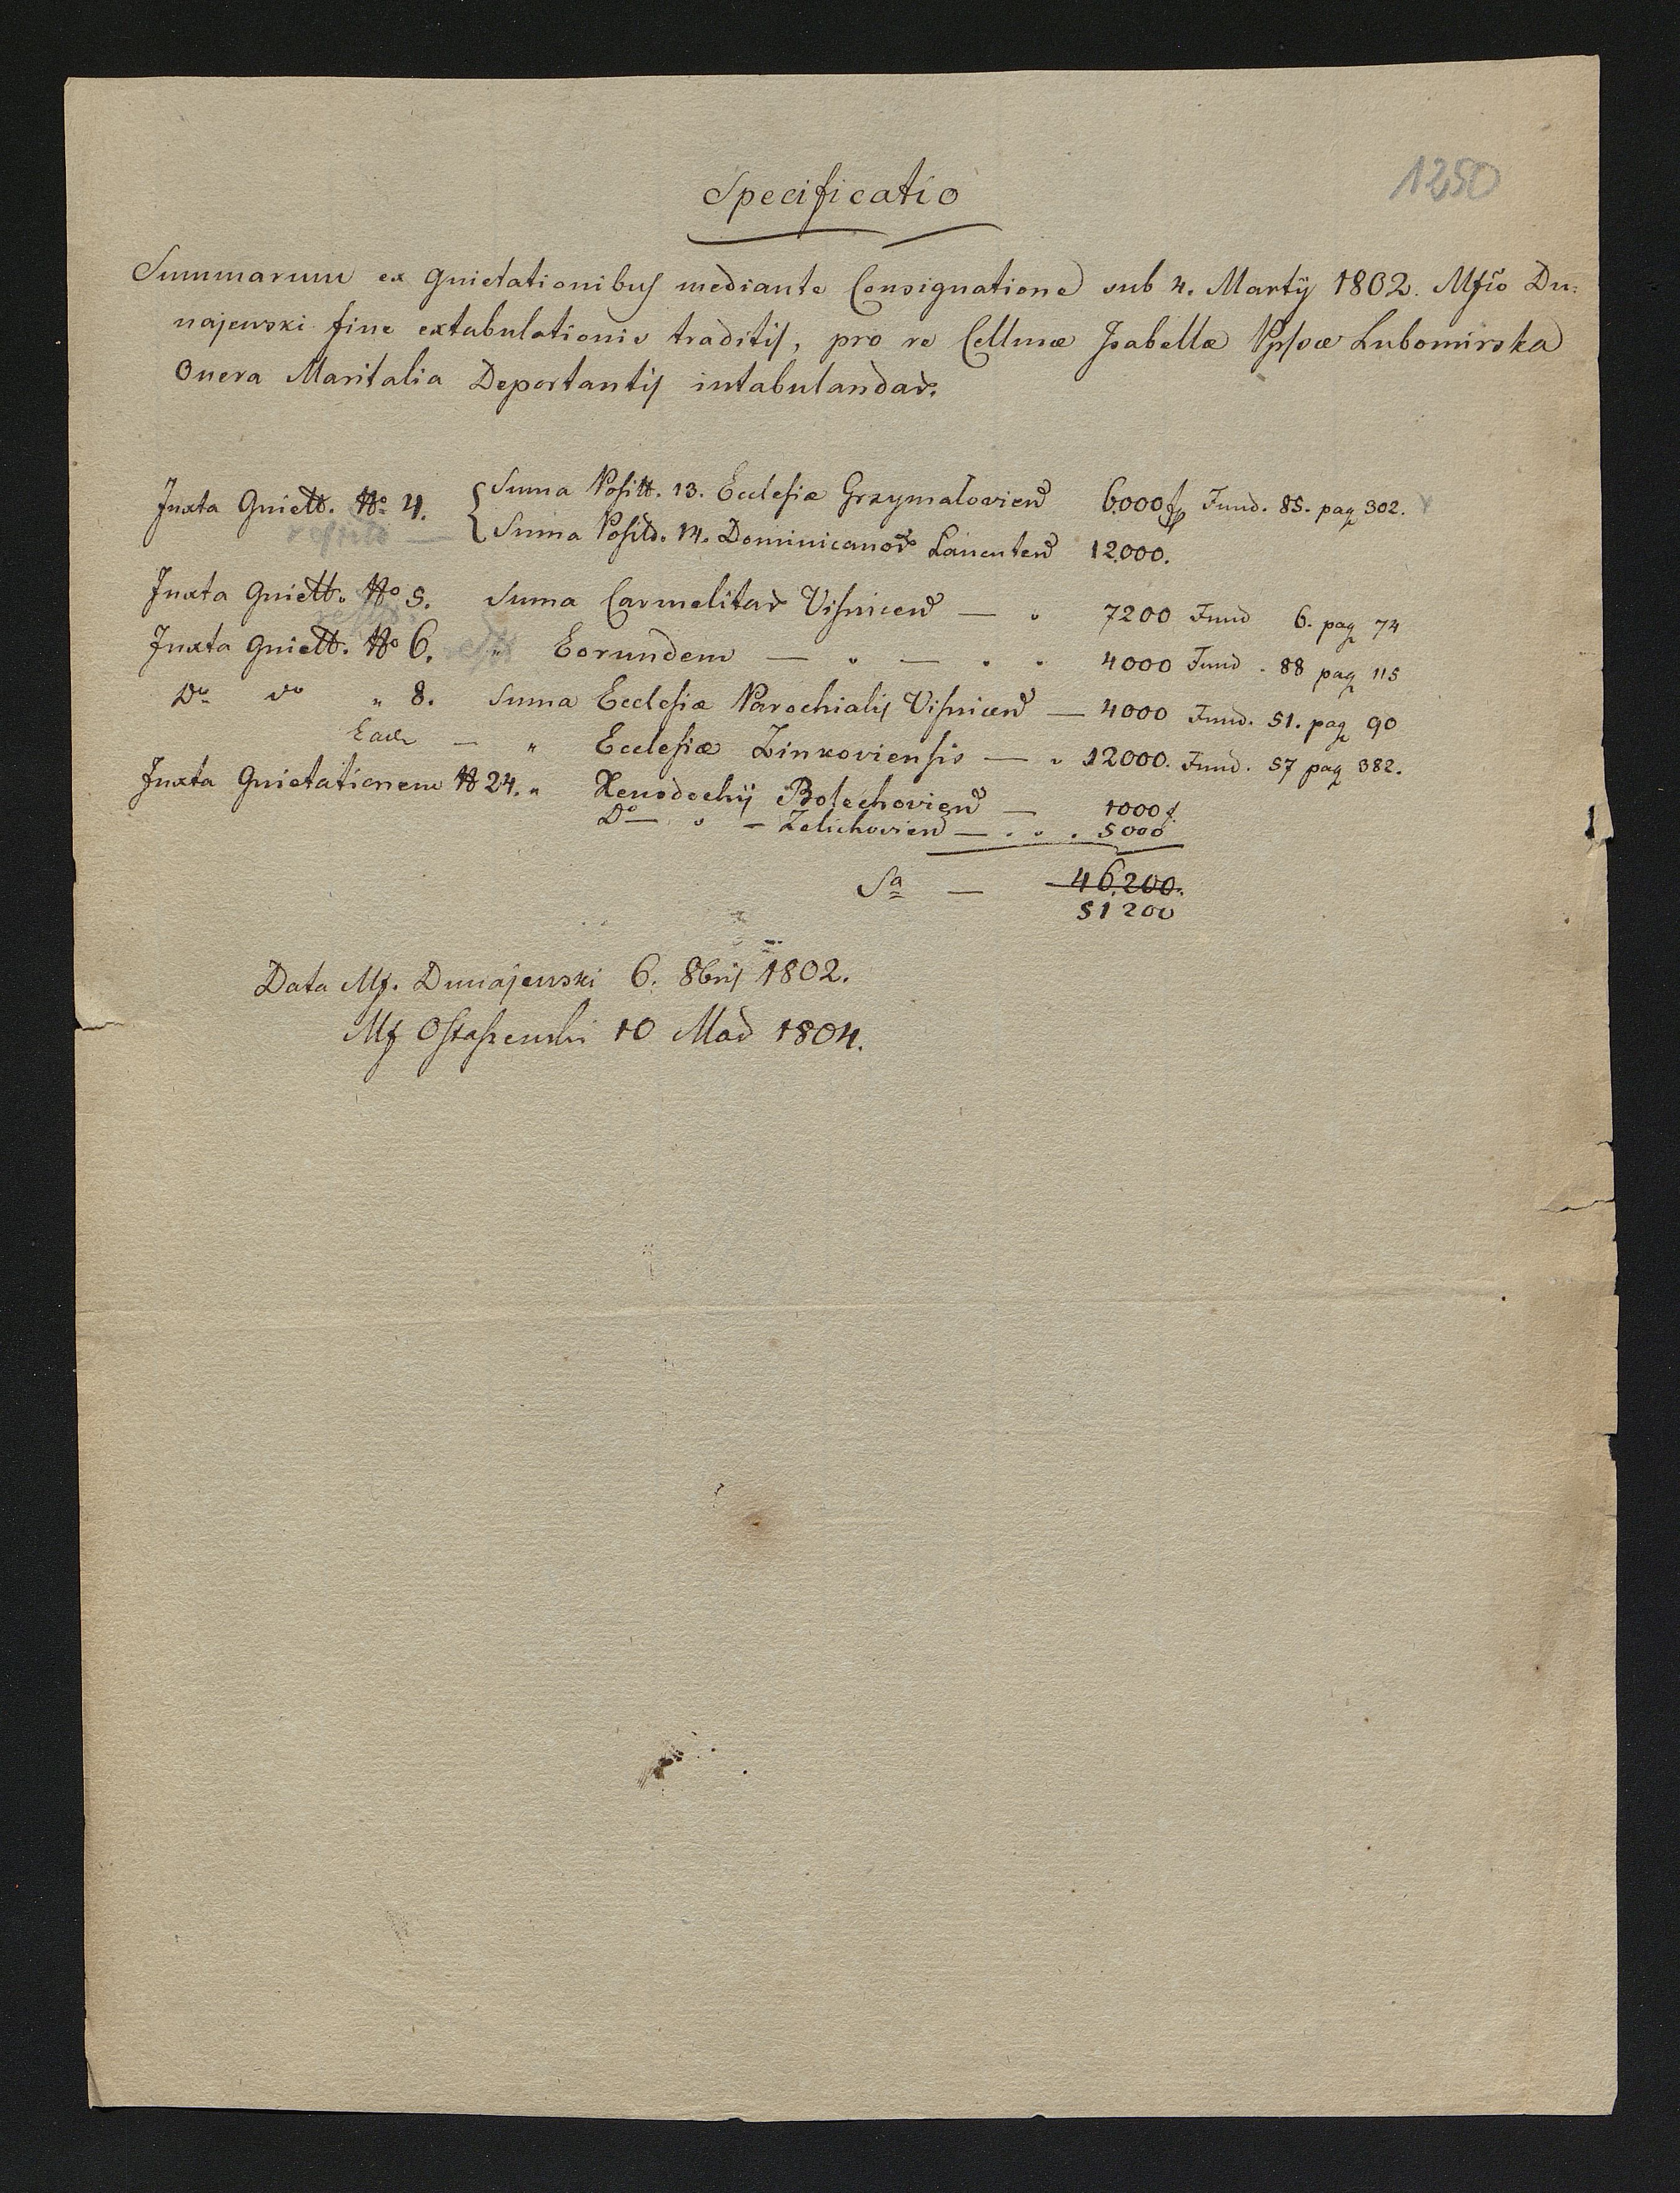 1250
Specificatio
Summarum ex Quietationibus mediante Consignatione sub 4. Martij 1802. Mfco Du:
najewski fine extabulationis traditis, pro re Cellmæ Isabellæ Ppssæ Lubomirska
Onera Maritalia Deportantis intabulandar.
Juxta Quiett. No 4. { Suma Positt. 13. Ecclesiæ Grzymałovien 6.000 f Fund. 85. pag 302.
Suma Positt. 14. Dominicanor Lancuten 12000.
Juxta Quiett. No 5. Suma Carmelitar Visnicen — " 7200 Fund 6. pag 74
Juxta Quiett. No 6. " Eorundem — " — " " 4000 Fund . 88 pag 115
Do do " 8. Suma Ecclesiæ Parochialis Visnicen — 4000 Fund. 51. pag 90
Ead — " Ecclesiæ Zinkoviensis — " 12000. Fund. 57 pag 382.
Juxta Quietationem No 24. " Xenodochij Bolechovien — 1000 f.
Do — " — Zelichovien — . " . 5000
Sa — 46.200.
51200
Data Mf. Dunajewski 6. 8bris 1802.
Mf Ostaszewski 10 Mad 1804.